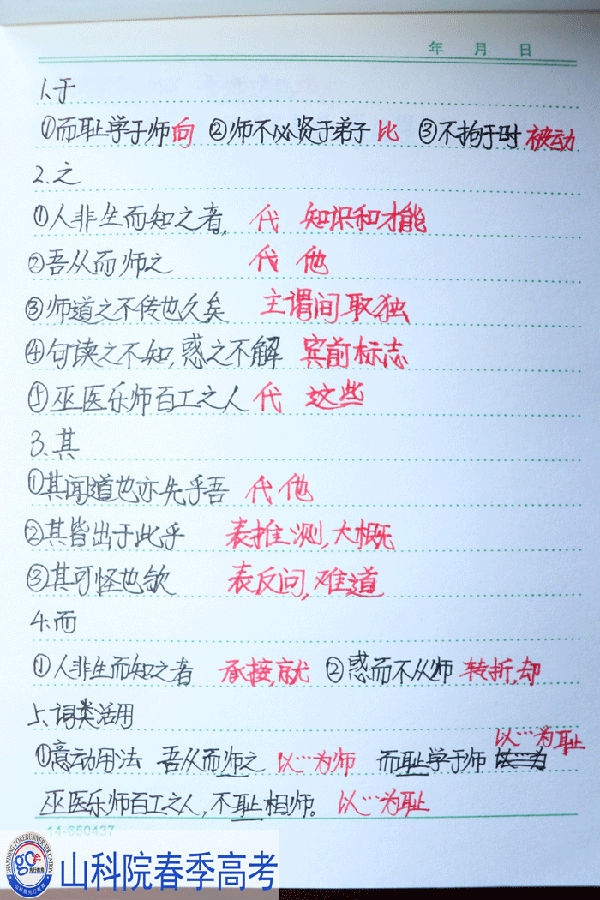 年 月 日
1.于
①而耻学于师 向 ②师不必贤于弟子 比 ③不拘于时 被动
2.之
①人非生而知之者, 代 知识和才能
②吾从而师之 代 他
③师道之不传也久矣 主谓间取独
④句读之不知,惑之不解 宾前标志
①巫医乐师百工之人 代 这些
3.其
①其闻道也亦先乎吾 代他
②其皆出于此乎 表推测,大概
③其可怪也欤 表反问,难道
4.而
①人非生而知之者 承接,就 ②惑而不从师 转折,却
5.词类活用
以…为耻
①意动用法 吾从而师之 以…为师 而耻学于师 以…为
巫医乐师百工之人,不耻相师。 以…为耻
14-850437
山科院春季高考